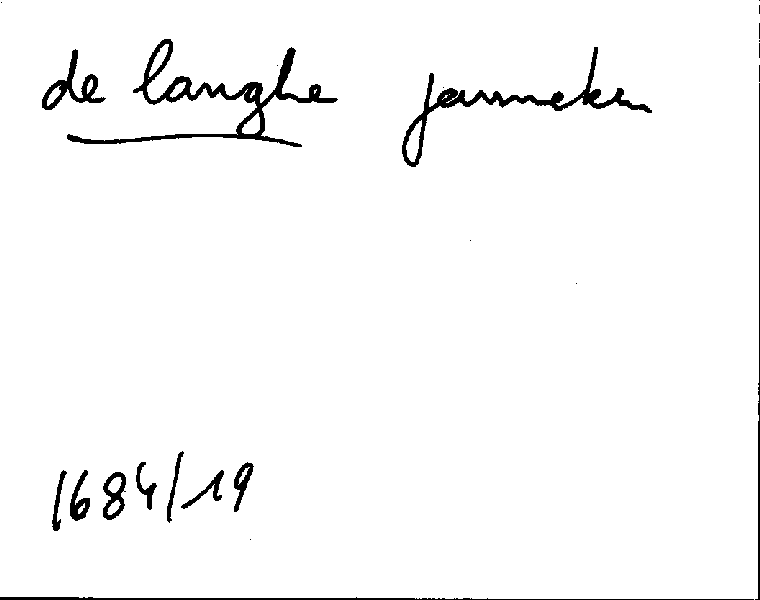 de langhe janneken
1684/19